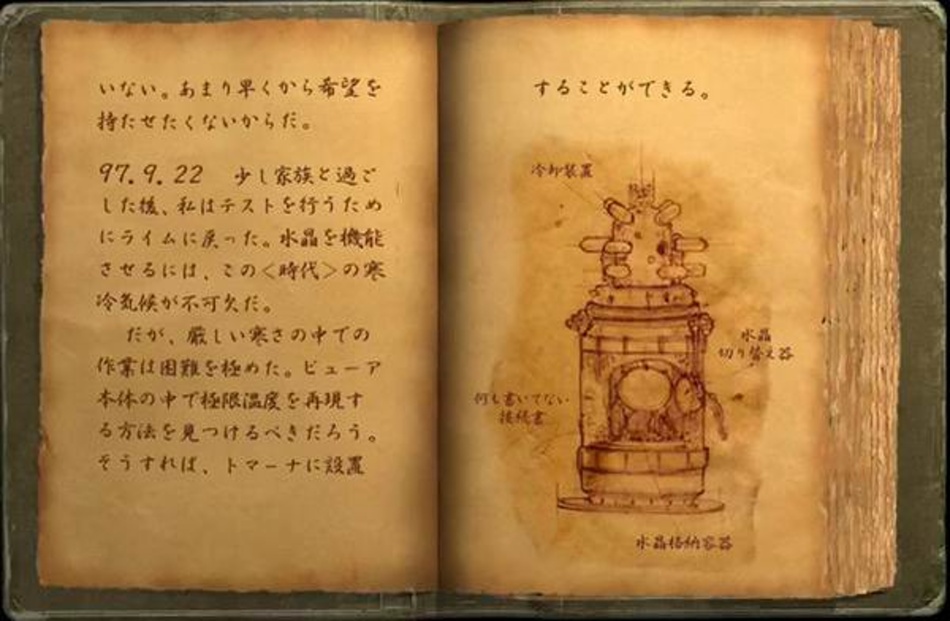 いない。あまり早くから希望を
持たせたくないからだ。
97.9.22 少し家族と過ご
した後、私はテストを行うため
にライムに戻った。水晶を機能
させるには、この<時代>の寒
冷気候が不可欠だ。
だが、厳しい寒さの中での
作業は困難を極めた。ビューア
本体の中で極限温度を再現す
る方法を見つけるべきだろう。
そうすれば、トマーナに設置
することができる。
冷却装置
水晶
切り替え器
何も書いてない
接続書
水晶格納容器